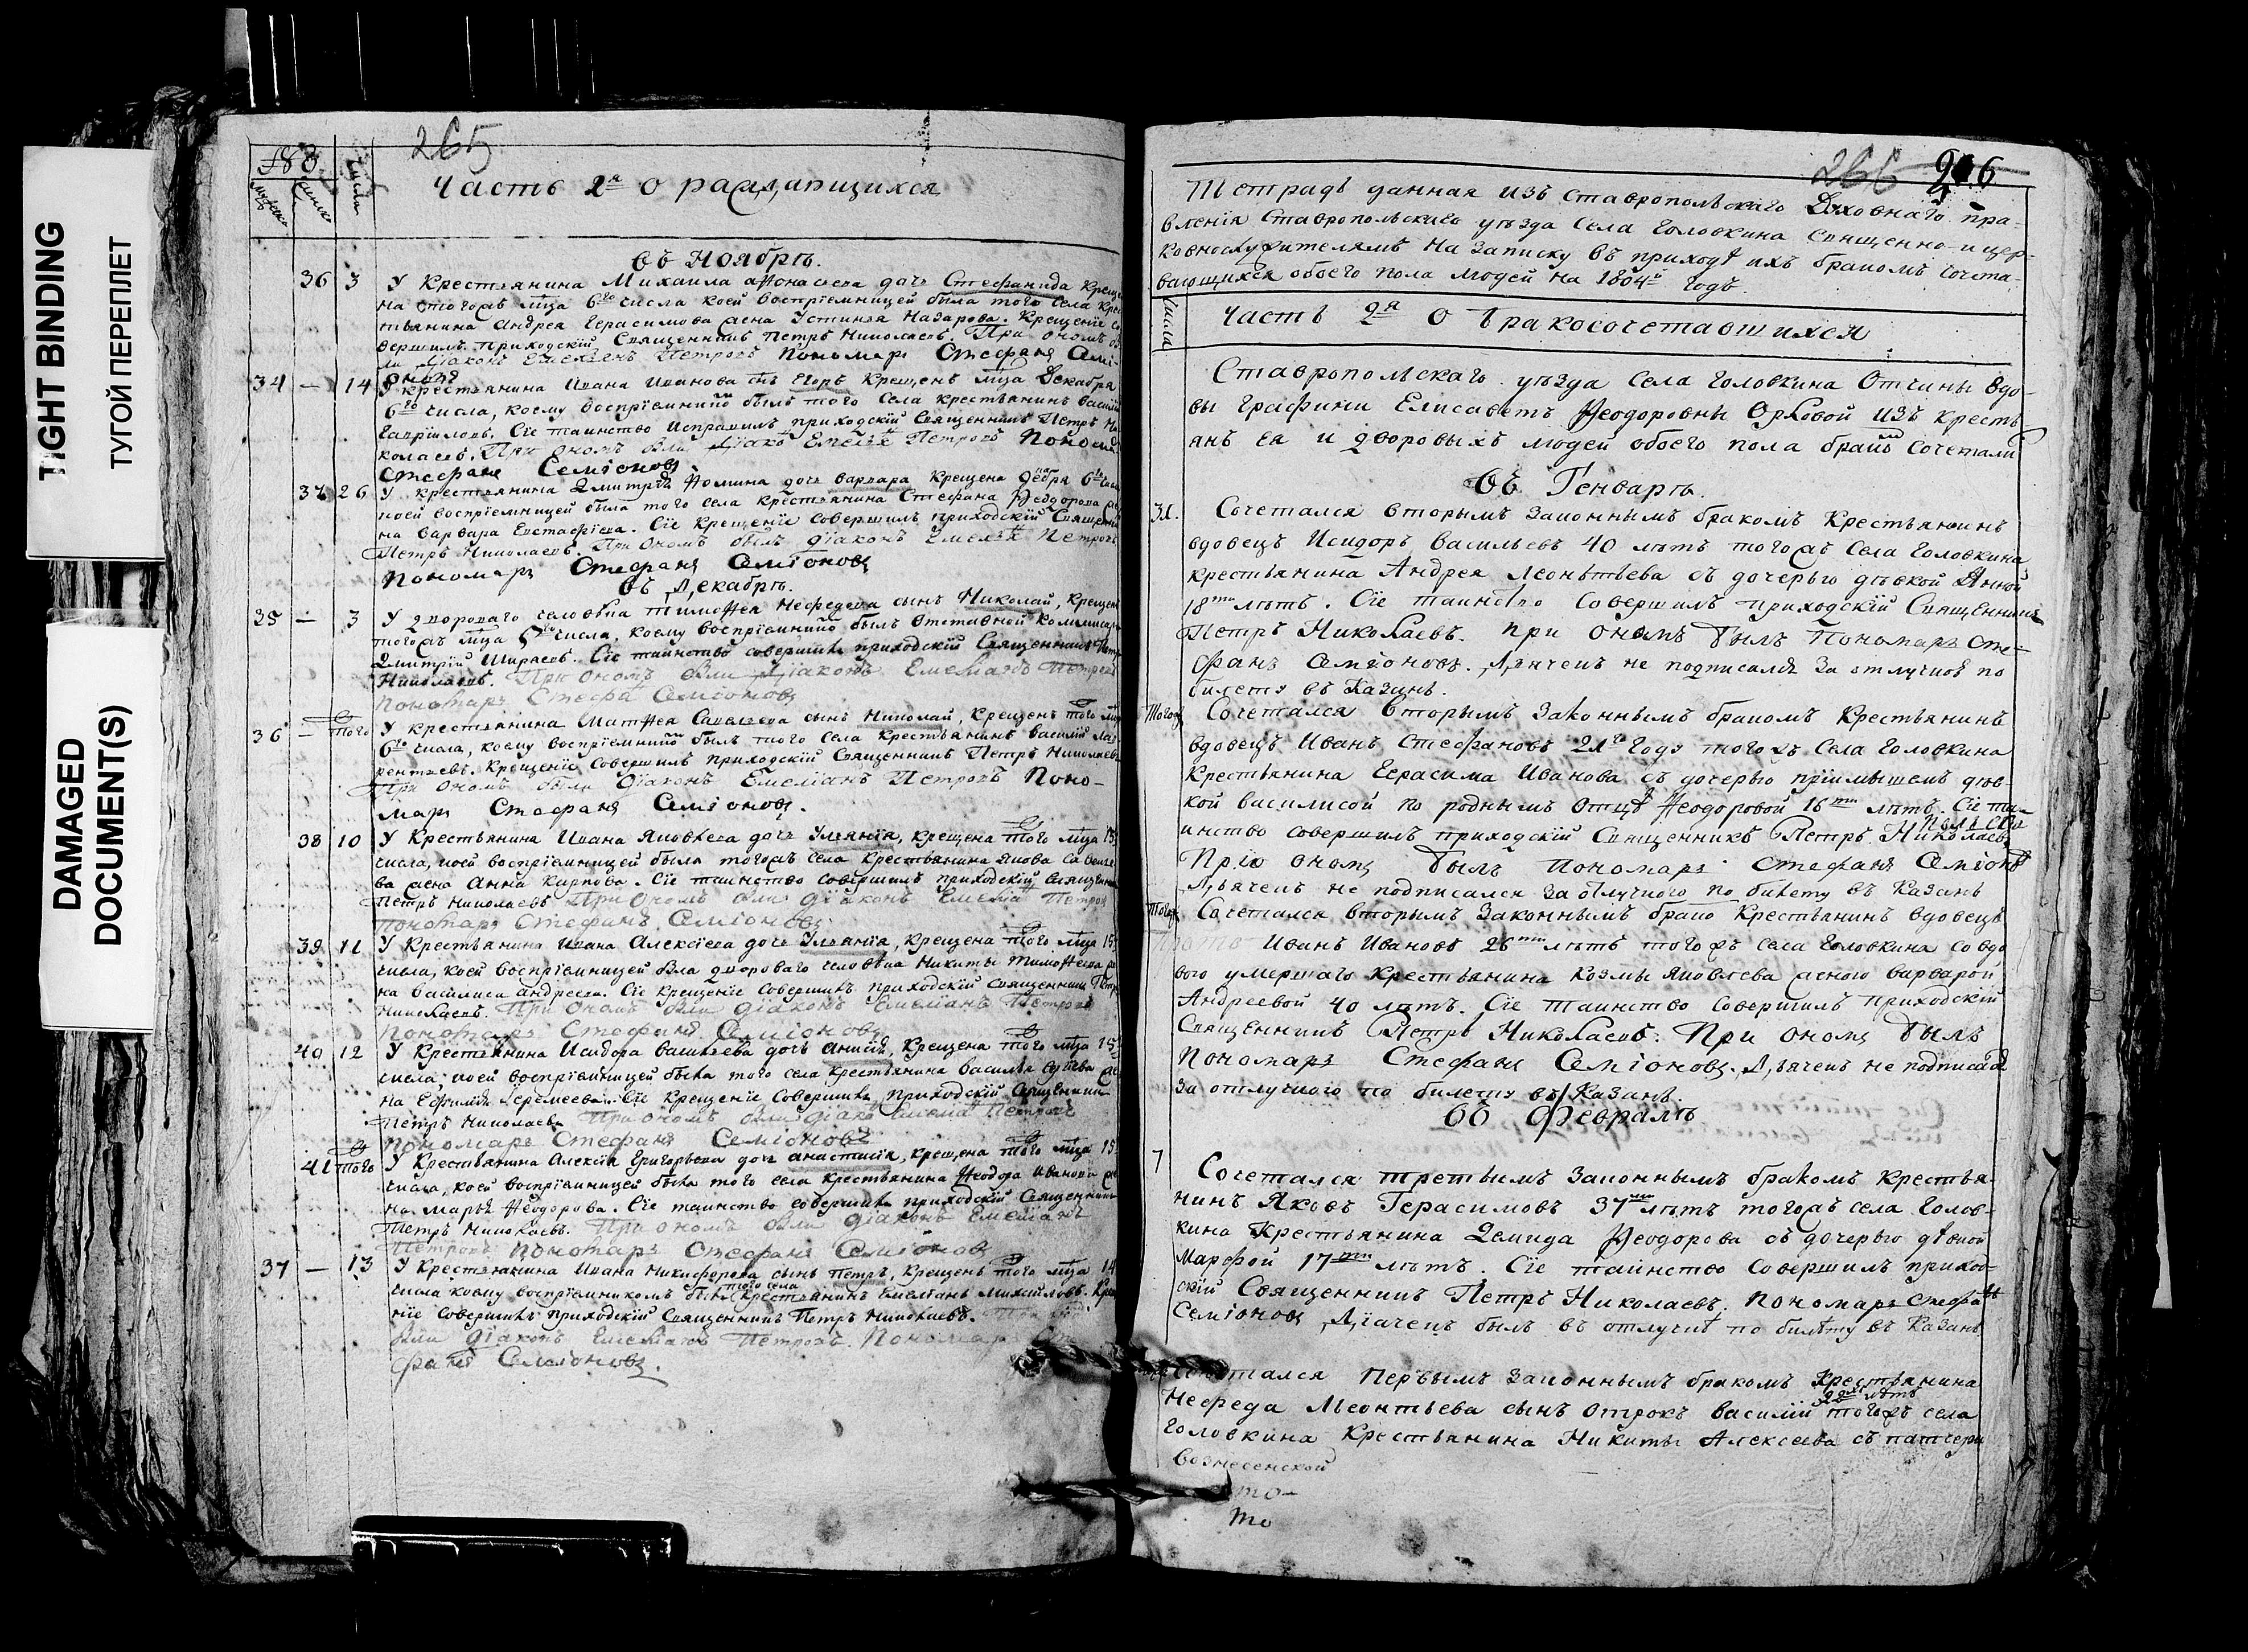 TIGHT BINDING
ТУГОЙ ПЕРЕПЛЕТ
DAMAGED
DOCUMENT(S)
265
183
Числа
Часть 2я о раждающихся
въ Ноябрѣ.
36 3 У Крестьянина Михаила Афонасьева дочь Стефанида
тогожъ мца 6го числа коей воспріемницей была того села
тьянина Андрея Герасимова жена Устинья Назарова. Крещеніе
вершилъ приходскій Священникъ Петръ Николаевъ. При ономъ
діаконъ Емельянъ Петровъ Пономарь Стефанъ
34 — 14 У крестьянина Ивана Иванова снъ Егоръ Крещенъ мца Декабря
6го числа, коему воспріемникъ былъ того Села крестьянинъ
Гавріиловъ. Сіе таинство Исправилъ приходскій Священникъ Петръ Ни
колаевъ. При ономъ были Петровъ
Стефанъ Семіоновъ
37 26 У крестьянина Дмитрія Фомина дочь Варвара Крещена
коей воспріемницей была того села крестьянина Стефана Ѳеодорова
на Варвара Евстафіева. Сіе Крещеніе Совершилъ приходскій
Петръ Николаевъ. При ономъ былъ діаконъ Петровъ
Пономарь Стефанъ Семіоновъ
въ Декабрѣ.
35 — 3 У двороваго человѣка Тимоѳея Нефедева сынъ Николай,
тогожъ мца числа, коему воспріемникъ былъ
Дмитрій Ширяевъ. Сіе таинство совершилъ приходскій Священникъ
Николаевъ. При ономъ были Діаконъ Петровъ
Пономарь Стефанъ Семіоновъ
36 — того У крестьянина Матѳея сынъ Николай, Крещенъ того
6го числа, коему воспріемникъ былъ того села Крестьянинъ Василій Лав
рентьевъ. Крещеніе Совершилъ приходскій Священникъ Петръ Николаевъ
При ономъ были діаконъ Емеліанъ Петровъ Поно-
марь Стефанъ Семіоновъ.
38 10 У Крестьянина Ивана Яковлева дочь Ульянія, Крещена того мца
числа, коей воспріемницей была тогожъ села Крестьянина Якова
ва жена Анна Карпова. Сіе таинство совершилъ приходскій
Петръ Николаевъ При ономъ были діаконъ Петровъ
Пономарь Стефанъ Семіоновъ
39 11 У Крестьянина Ивана Алексіева дочь Ульянія, Крещена того мца
числа, коей воспріемницей была двороваго человѣка Никиты Тимоѳеева
на Василиса Андреева. Сіе Крещеніе Совершилъ приходскій Священникъ
Николаевъ. При ономъ были діаконъ Емеліанъ Петровъ
Пономарь Стефанъ Семіоновъ
40 12 У Крестьянина Исидора Васильева дочь Анисія, Крещена того мца
числа, коей воспріемницей была того села Крестьянина Василья
на Еремеева. Сіе Крещеніе Совершилъ Приходскій Священник
Петръ Николаевъ При ономъ были діаконъ Петровъ
Пономарь Стефанъ Семіоновъ
41 того У Крестьянина Алексія Григорьева дочь Анастасія, Крещена того мца 15
числа, коей воспріемницей была того села Крестьянина Ѳеодора Иванова
на Марья Ѳеодорова. Сіе таинство совершилъ приходскій Священникъ
Петръ Николаевъ. При ономъ были діаконъ Емеліанъ
Петровъ Пономарь Стефанъ Семіоновъ
37 — 13 У Крестьянина Ивана Никифорова сынъ Петръ, Крещенъ того мца 14
числа коему воспріемникомъ былъ того села Крестьянинъ Емеліанъ Михайловъ.
ніе Совершилъ приходскій Священникъ Петръ Николаевъ.
были діаконъ Петровъ. Пономарь
фанъ Семіоновъ.
266
Тетрадь данная изъ Ставропольскаго Духовнаго пра-
вленія Ставропольскаго уѣзда Села Головкина Священно- и цер-
ковнослужителямъ на записку въ приходѣ ихъ бракомъ сочета-
вающихся обоего пола людей на 1804й годъ.
Числа
Часть 2я о бракосочетавшихся
Ставропольскаго уѣзда Села Головкина Отчины вдо-
вы Графини Елисаветъ Ѳеодоровны Орловой изъ кресть
янъ ея и дворовыхъ людей обоего пола бракомъ сочетали
въ Генварѣ.
31. Сочетался вторымъ законнымъ бракомъ Крестьянинъ
вдовецъ Исидоръ Васильевъ 40 лѣтъ тогожъ Села Головкина
крестьянина Андрея Леонтьева съ дочерью дѣвкой Анной
18ти лѣтъ. Сіе таинство Совершилъ приходскій Священникъ
Петръ Николаевъ. При ономъ былъ Пономарь Сте-
фанъ Семіоновъ. Дьячекъ не подписался за отлучкою по
билету въ Казань.
Тогожъ Сочетался вторымъ законнымъ бракомъ Крестьянинъ
вдовецъ Иванъ Стефановъ 21го Году тогожъ Села Головкина
Крестьянина Герасима Иванова съ дочерью пріимышемъ дѣв-
кой Василисой по роднымъ Отцѣ Ѳеодоровой 16ти лѣтъ. Сіе та-
инство совершилъ приходскій Священникъ Петръ Николаевъ
При ономъ былъ Пономарь Стефанъ Семіоновъ
Дьячекъ не подписался за отлучкою по билету въ Казань
Тогожъ Сочетался вторымъ Законнымъ брако Крестьянинъ вдовецъ
Иванъ Ивановъ 26ти лѣтъ тогожъ села Головкина со вдо
вою умершаго Крестьянина Козмы Яковлева женою Варварой
Андреевой 40 лѣтъ. Сіе таинство Совершилъ приходскій
Священникъ Петръ Николаевъ. При ономъ былъ
Пономарь Стефанъ Семіоновъ. Дьячекъ не подписался
за отлучкою по билету въ Казань.
въ Февралѣ
7 Сочетался третьимъ Законнымъ бракомъ Крестья-
нинъ Яковъ Герасимовъ 37ми лѣтъ тогожъ села Голов-
кина Крестьянина Демида Ѳеодорова съ дочерью дѣвкой
Марфой 17ти лѣтъ. Сіе таинство Совершилъ приход-
скій Священникъ Петръ Николаевъ. Пономарь Стефанъ
Семіоновъ Діачекъ былъ въ отлучкѣ по билѣту въ Казань
Сочетался Первымъ Законнымъ бракомъ Крестьянина
Нефеда Леонтьева сынъ Отрокъ Василій тогожъ села
Головкина Крестьянина Никиты Алексеева съ патчери
Вознесенской
то-
то